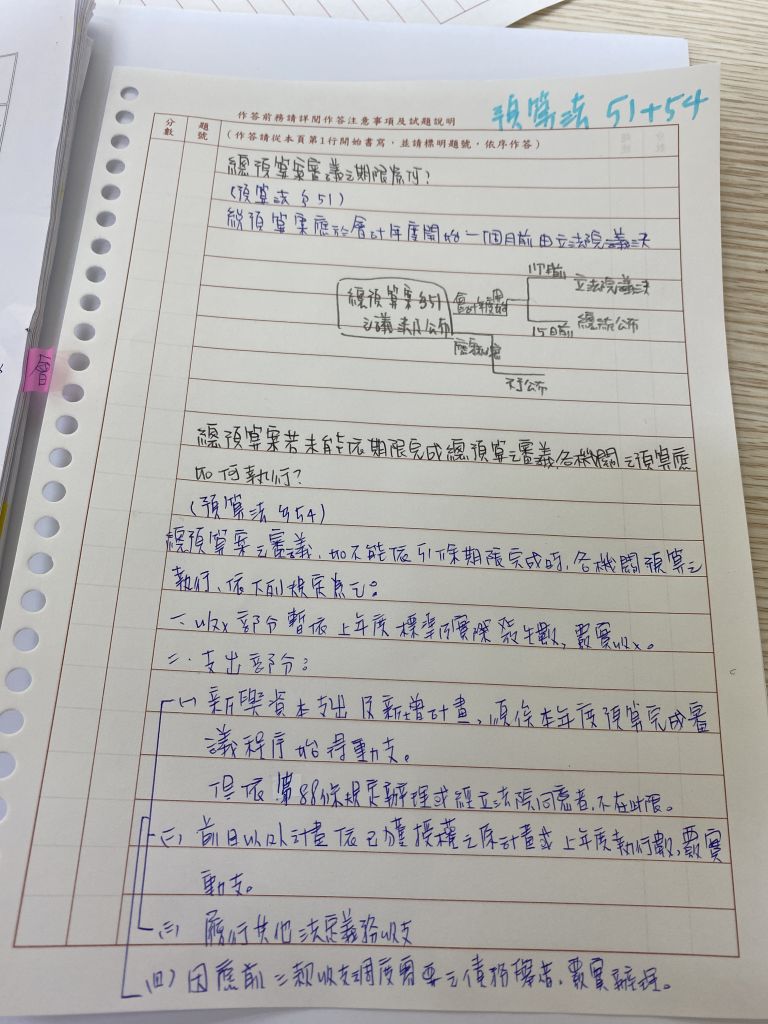 預算法 51+54
作答前務請詳閱作答注意事項及試題說明
分數
題號
（作答請從本頁第1行開始書寫，並請標明題號，依序作答）
總預算案審議之期限為何？
（預算法§51）
總預算案應於會計年度開始一個月前由立法院議決
1個月前
立法院議決
總預算案§51
之議決及公布
會計年度開始
15日前
總統公布
應秘密
不予公布
會
總預算案若未能依期限完成總預算之審議各機關之預算應
如何執行？
（預算法§54）
總預算案之審議，如不能依引條期限完成時，各機關預算之
執行，依下列規定為之：
一、收入部分暫依上年度標準及實際發生數，覈實收入。
二、支出部分：
(一) 新興資本支出及新增計畫，須俟本年度預算完成審
議程序始得動支。
但依第88條規定辦理或經立法院同意者，不在此限。
(二) 前目以外計畫依已獲授權之原計畫或上年度執行數，覈實
動支。
(三) 履行其他法定義務收支
(四) 因應前三類收支調度需要之債務舉借，覈實辦理。